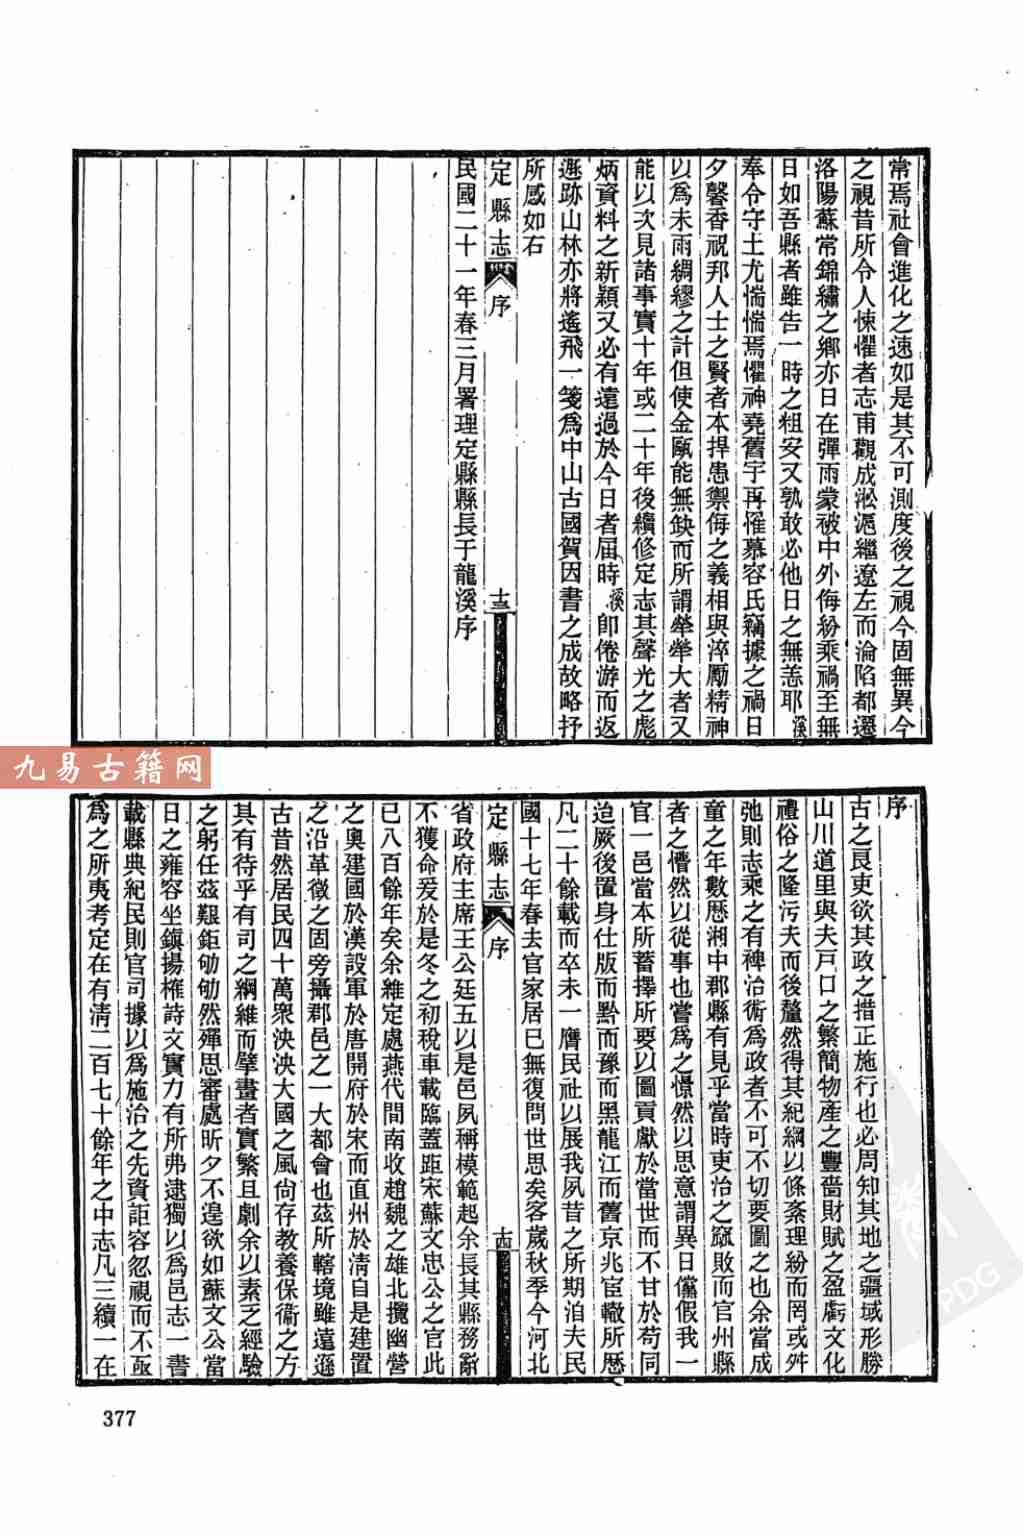 常焉社會進化之速如是其不可測度後之視今固無異今
之視昔所令人悚懼者志甫觀成淞滬繼遼左而淪陷都遷
洛陽蘇常錦繡之鄉亦日在彈雨蒙被中外侮紛乘禍至無
日如吾縣者雖告一時之粗安又孰敢必他日之無恙耶溪
奉令守土尤惴惴焉懼神堯舊宇再罹慕容氏竊據之禍日
夕馨香祝邦人士之賢者本捍患禦侮之義相與淬勵精神
以爲未雨綢繆之計但使金甌能無缺而所謂犖犖大者又
能以次見諸事實十年或二十年後續修定志其聲光之彪
炳資料之新穎又必有遠過於今日者屆時溪卽倦游而返
遯跡山林亦將遙飛一箋爲中山古國賀因書之成故略抒
所感如右
定縣志 序 十三
民國二十一年春三月署理定縣縣長于龍溪序
序
古之良吏欲其政之措正施行也必周知其地之疆域形勝
山川道里與夫戸口之繁簡物產之豐嗇財賦之盈虧文化
禮俗之隆污夫而後釐然得其紀綱以條紊理紛而罔或舛
弛則志乘之有裨治術爲政者不可不切要圖之也余當成
童之年數歷湘中郡縣有見乎當時吏治之窳敗而官州縣
者之懵然以從事也嘗爲之憬然以思意謂異日儻假我一
官一邑當本所蓄擇所要以圖貢獻於當世而不甘於苟同
迨厥後置身仕版而黔而豫而黑龍江而舊京兆宦轍所歷
凡二十餘載而卒未一膺民社以展我夙昔之所期洎夫民
國十七年春去官家居已無復問世思矣客歲秋季今河北
定縣志 序 十四
省政府主席王公廷五以是邑夙稱模範起余長其縣務辭
不獲命爰於是冬之初稅車載臨蓋距宋蘇文忠公之官此
已八百餘年矣余維定處燕代間南收趙魏之雄北攬幽營
之奧建國於漢設軍於唐開府於宋而直州於淸自是建置
之沿革徵之固旁攝郡邑之一大都會也茲所轄境雖遠遜
古昔然居民四十萬衆泱泱大國之風尙存教養保衞之方
其有待乎有司之綱維而擘畫者實繁且劇余以素乏經驗
之躬任茲艱鉅劬劬然殫思審處昕夕不遑欲如蘇文公當
日之雍容坐鎮揚榷詩文實力有所弗逮獨以爲邑志一書
載縣典紀民則官司據以爲施治之先資詎容忽視而不亟
爲之所夷考定在有淸二百七十餘年之中志凡三續一在
377
九易古籍网
PDG